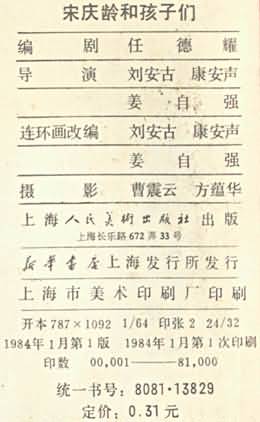 宋庆龄和孩子们
编 剧 任 德 耀
导 演 刘安古 康安声
姜 自 强
连环画改编 刘安古 康安声
姜 自 强
摄 影 曹震云 方蕴华
上海人民美術出版社 出版
上海长乐路 672 弄 33 号
新华書店上海发行所发行
上海市美术印刷厂印刷
开本 787×1092 1/64 印张 2 24/32
1984年1月第1版 1984年1月第1次印刷
印数 00,001——81,000
统一书号：8081·13829
定价：0.31 元